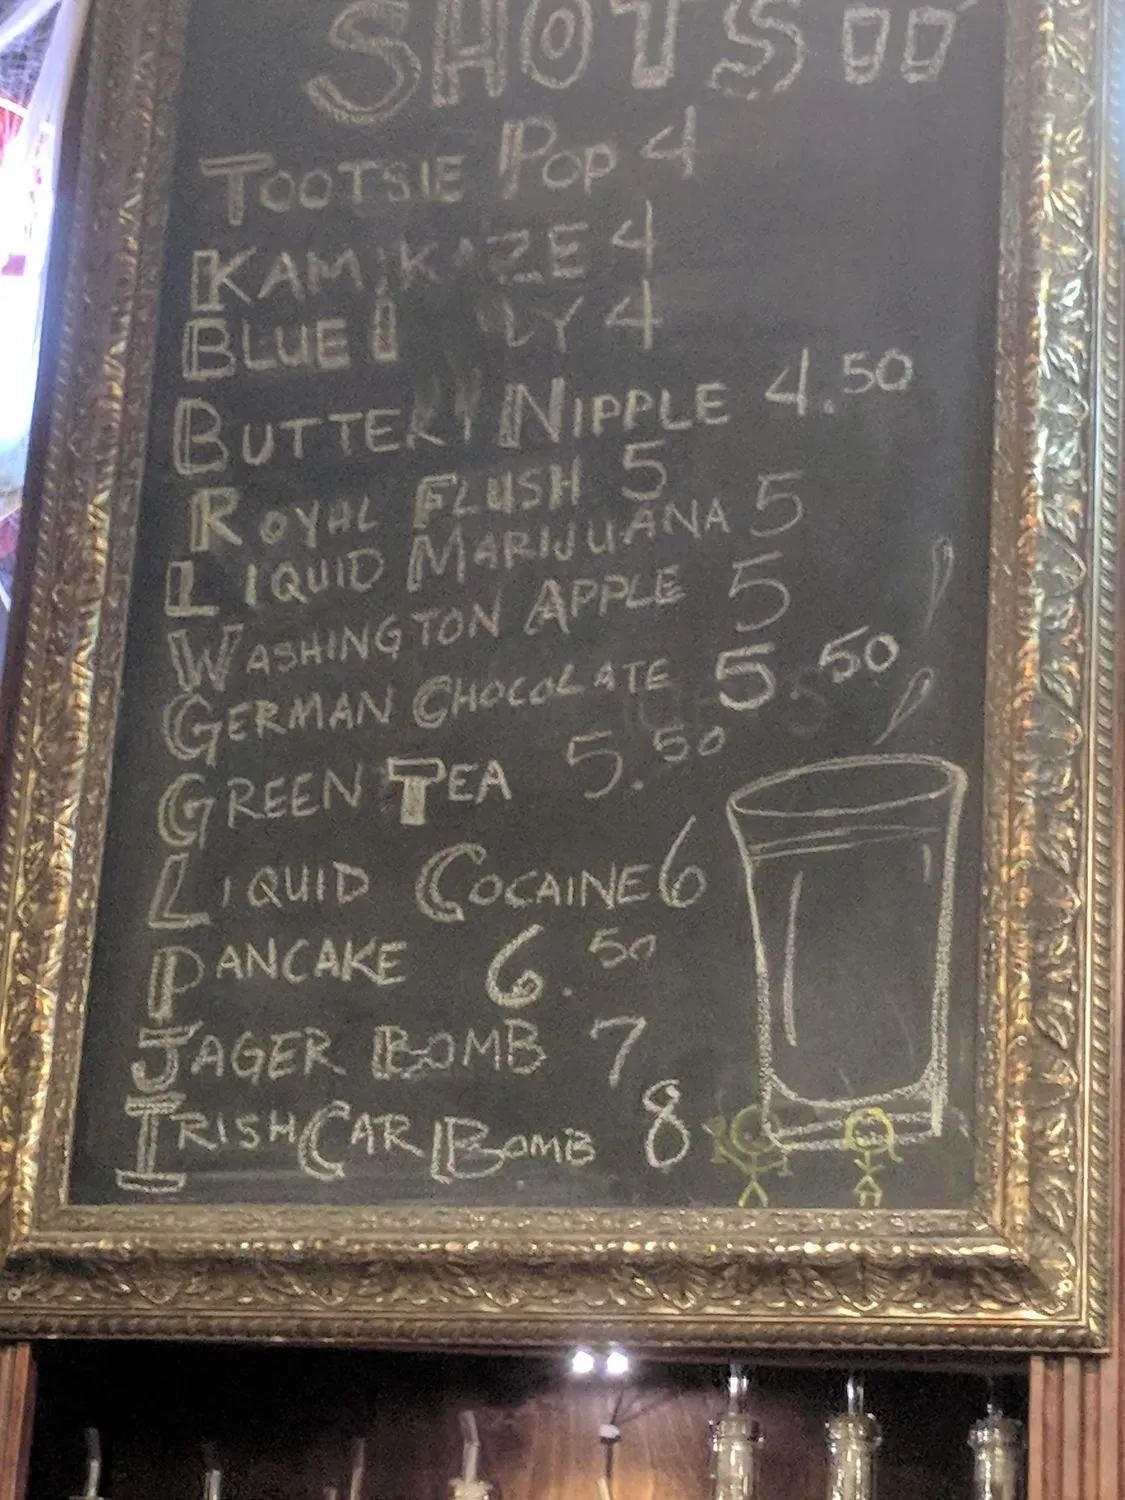 SHOTS
TOOTSIE POP 4
KAMIKAZE 4
BLUE 4
BUTTERY NIPPLE 4.50
ROYAL FLUSH 5
LIQUID MARIJUANA 5
WASHINGTON APPLE 5
GERMAN CHOCOLATE 5.50
GREEN TEA 5.50
LIQUID COCAINE 6
PANCAKE 6.50
JAGER BOMB 7
IRISH CAR BOMB 8